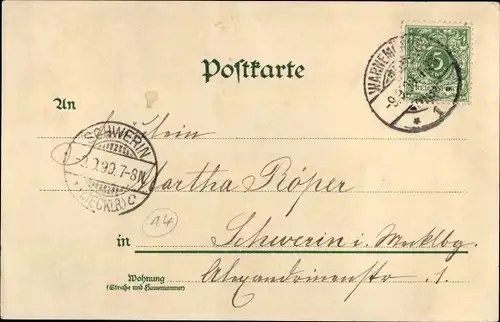 Postkarte
An
Fräulein
Martha Röper
in Schwerin i. Mcklbg.
Wohnung
(Straße und Hausnummer)
Alexandrinenstr. 1.
SCHWERIN
9.99.7-8N
(MECKLB)
WARNEM
1
5
14